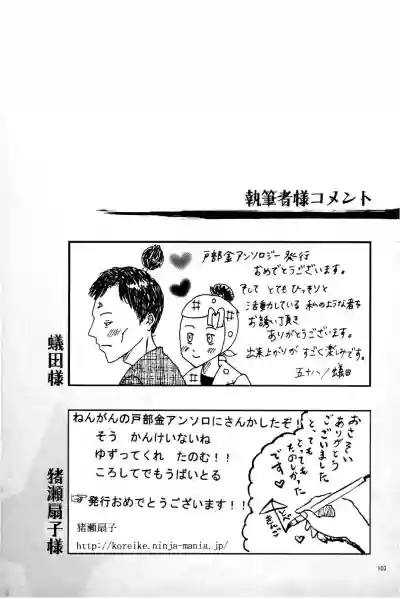 執筆者様コメント
戸部金アンソロジー発行
おめでとうございます。
そして とても ひっそりと
活動している 私のような者を
お誘い頂き
ありがとうございます。
出来上がりが すごく楽しみです。
五十八/蟻田
蟻田様
ねんがんの戸部金アンソロにさんかしたぞ!
そう かんけいないね
ゆずってくれ たのむ!!
ころしてでもうばいとる
☞発行おめでとうございます!!
猪瀬扇子
http://koreike.ninja-mania.jp/
おさそい
ありがとう
ございました
とっても
たのしかった
です♡
猪瀬扇子様
103